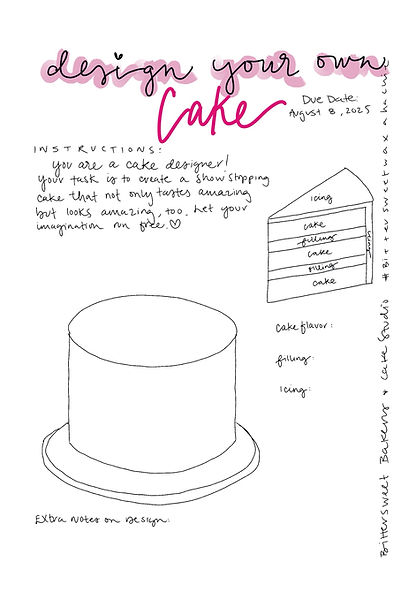 design your own
Cake
Due Date:
August 8, 2025
INSTRUCTIONS:
you are a cake designer!
Your task is to create a show stopping
cake that not only tastes amazing
but looks amazing, too. Let your
imagination run free.♡
icing
cake
filling
cake
filling
cake
cake flavor:
filling:
icing:
Extra notes on design:
Bittersweet Bakery + Cake Studio